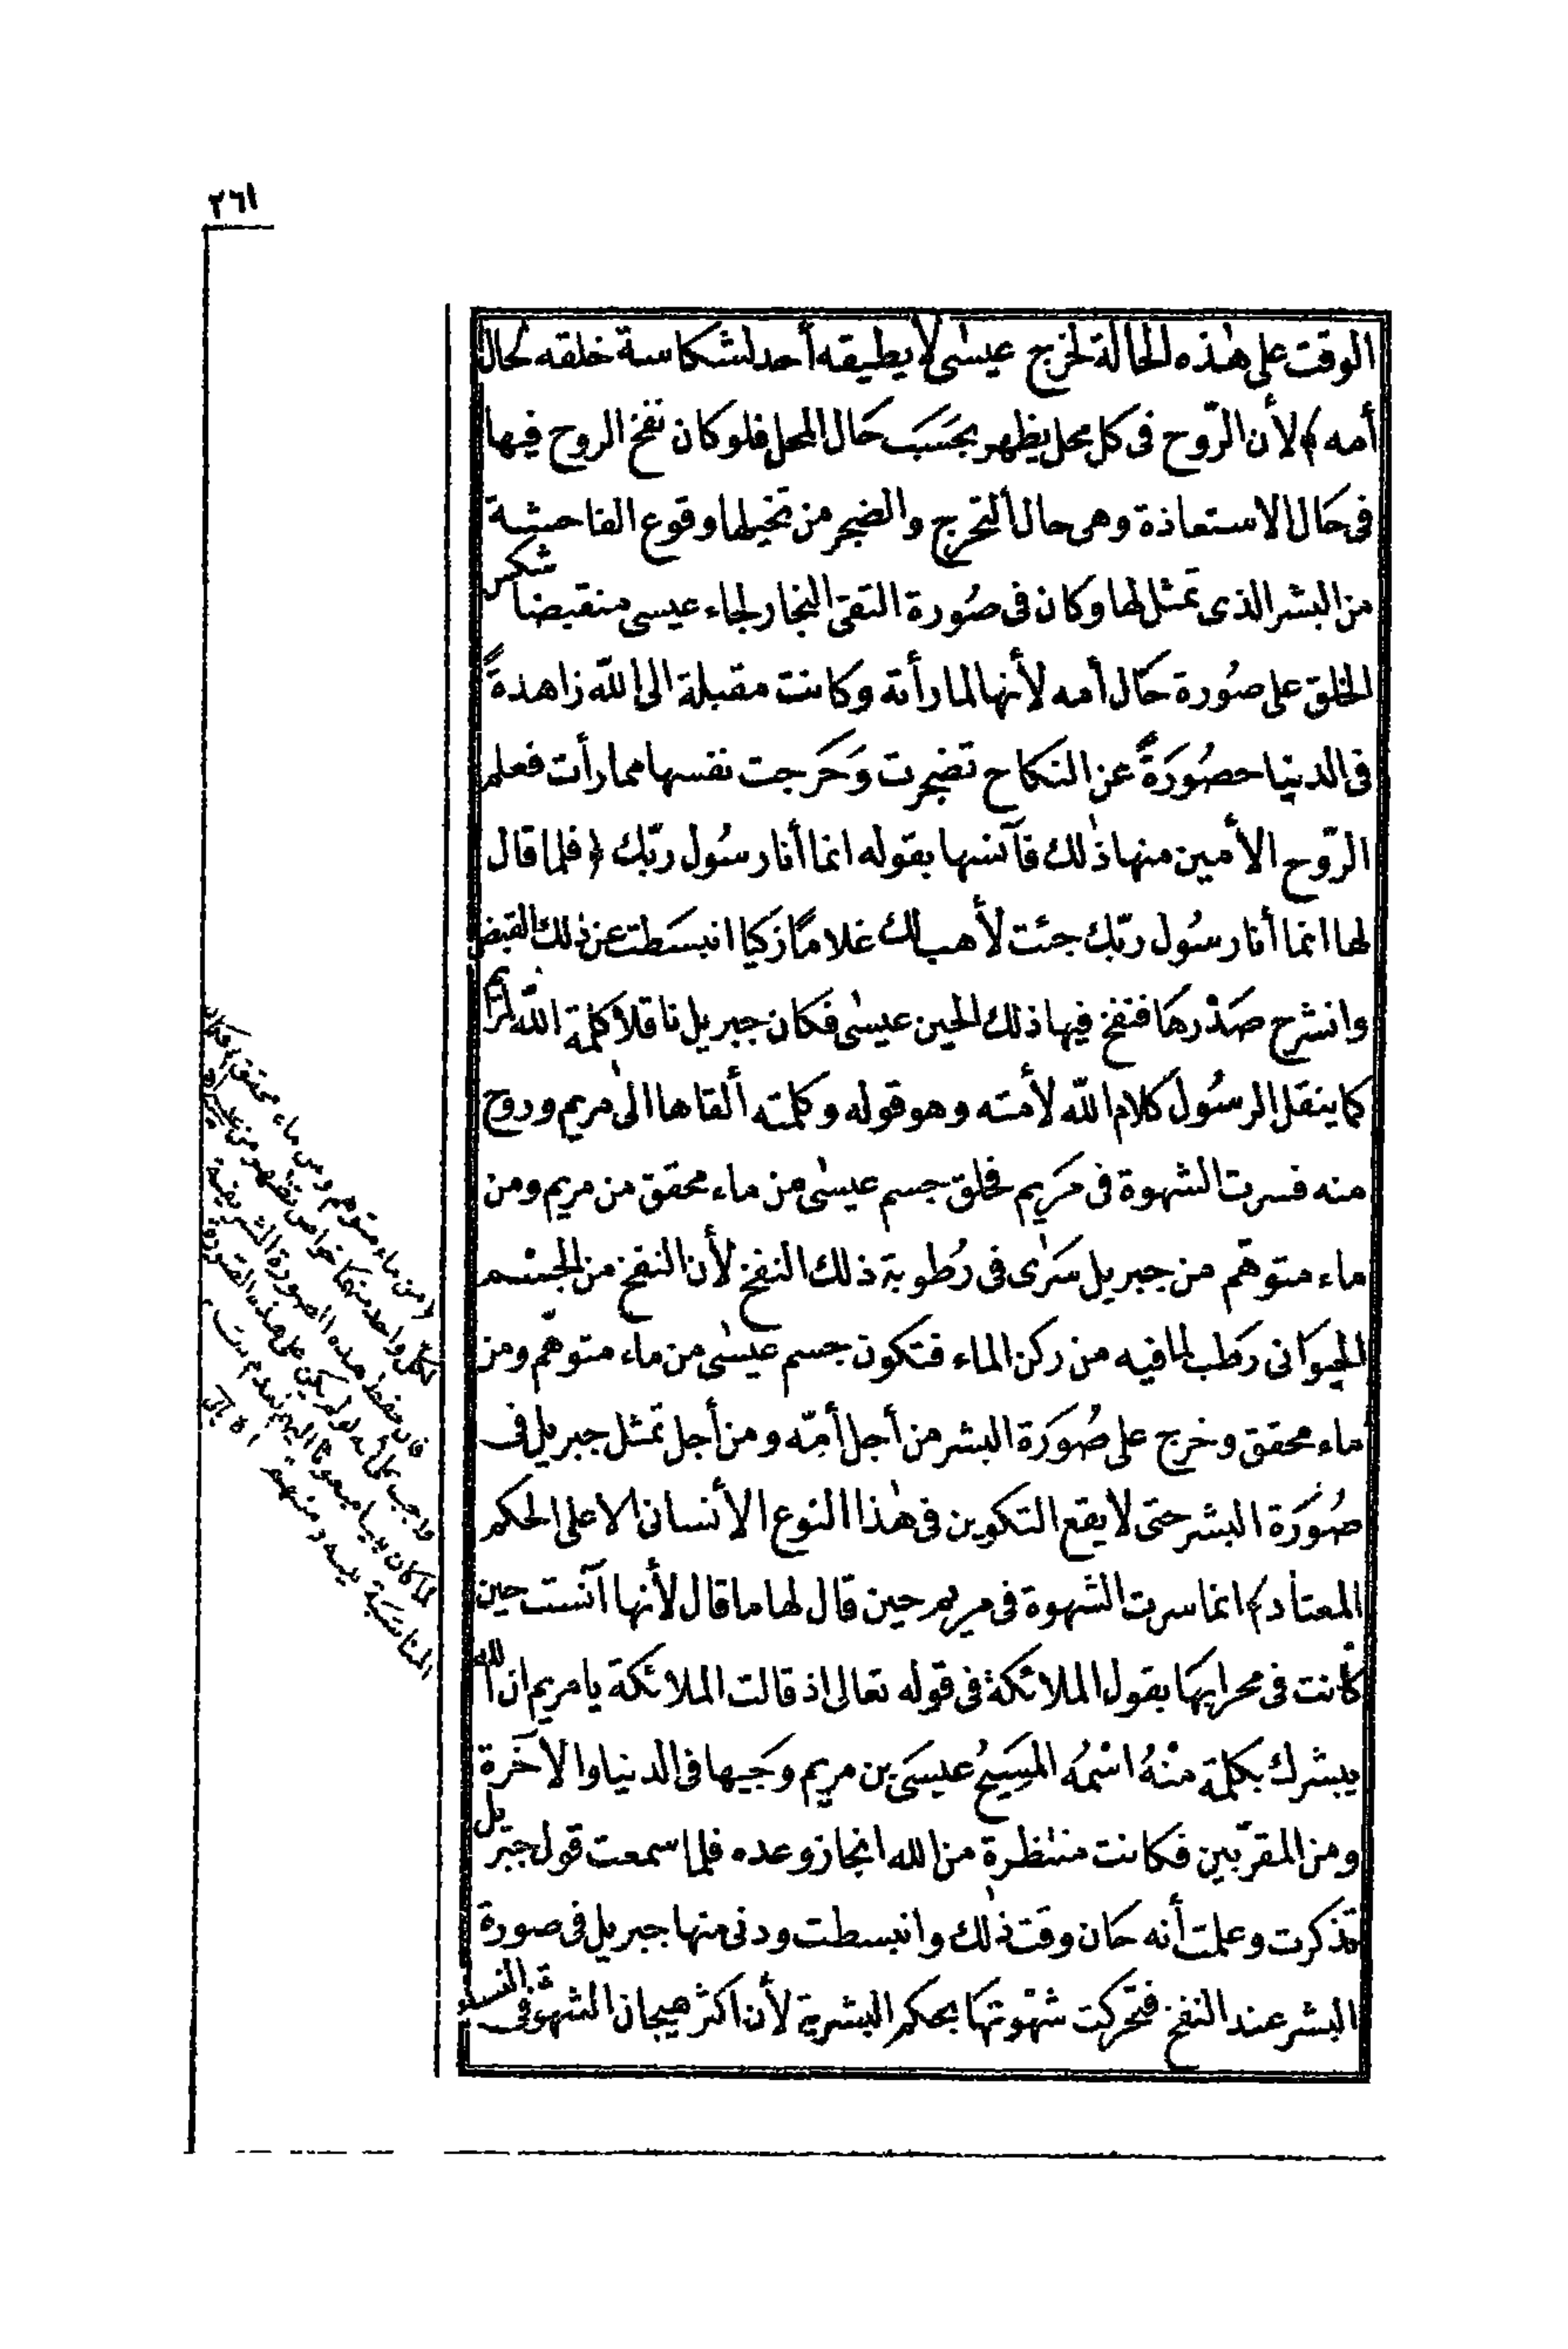 ٢٦١
الوقت على هٰذه الحالة لخرج عيسٰى لا يطيقه أحد لشكاسة خلقه لحال
أمه ﴾ لأن الرّوح فى كل محل يظهر بحَسَب حَال المحل فلو كان نفخ الروح فيها
فى حَال الاستعاذة وهى حال التحرج والضجر من تخيلها وقوع الفاحشة
من البشر الذى تمثل لها وكان فى صُورة التقى النجار لجاء عيسى منقبضا شكس
الخلق على صُورة حَال أمه لأنها لما رأته وكانت مقبلة الى الله زاهدةً
فى الدنيا حصُورَةً عن النكاح تضجرت وَحَرجت نفسها مما رأت فعلم
الرّوح الأمين منها ذٰلك فآنسها بقوله انما أنا رسُول ربّك ﴿ فلما قال
لها انما أنا رسُول ربّك جئت لأهب لك غلامًا زكيا انبسَطت عن ذٰلك القبض
وانشرح صَدْرهَا فنفخ فيها ذلك الحين عيسٰى فكان جبريل ناقلا كلمة اللّه لمريم
كما ينقل الرسُول كلام اللّه لأمته وهو قوله وكلمته ألقاها الىٰ مريم وروح
منه فسرت الشهوة فى مَريم فخلق جسم عيسٰى من ماء محقق من مريم ومن
ماء متوهّم من جبريل سَرٰى فى رُطوبة ذلك النفخ لأن النفخ من الجسْم
الحيوَانى رَطب لما فيه من ركن الماء فتكون جسم عيسٰى من ماء متوهّم ومن
ماء محقق وخرج على صُورَة البشر من أجل أمّه ومن أجل تمثل جبريل فى
صُورَة البشر حتى لا يقع التكوين فى هٰذا النوع الأنسانى الا على الحكم
المعتاد ﴾ انما سرت الشهوة فى مريم حين قال لها ما قال لأنها آنست حين
كانت فى محرابهَا بقول الملائكة فى قوله تعالى اذ قالت الملائكة يا مريم ان الله
يبشرك بكلمة منْهُ اسْمُه المَسِيحُ عيسَى بن مريم وَجيها فى الدنيا والآخَرة
ومن المقرّبين فكانت منتظرة من الله انجاز وعده فلما سمعت قول جبريل
تذكرت وعلمت أنه حَان وقَت ذٰلك وانبسطت ودنى منها جبريل فى صورة
البشر عند النفخ فتحركت شهْوتهَا بحكم البشرية لأن أكثر هيجان الشهوة فى النساء
ومن ماء محقق
لكل واحد منهما خواص تظهر من
فان حفظ هذه الصورة الشريفة
واجب على أنه لو لم يكن على هذه الصورة
لما كان نبيا مبعوثا اليهم لعدم
المناسَبة بينه ومنهم اه